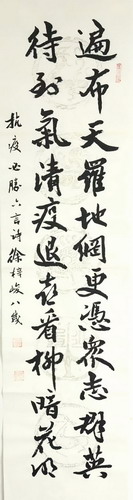 遍布天羅地網更憑衆志群英
待到氣清疫退喜看柳暗花明
抗疫必勝六言詩徐梓峻八歲